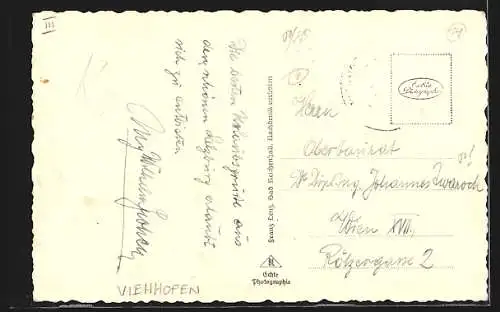 III
Die besten Urlaubsgrüße aus
dem schönen Salzburg erlaubt
sich zu entbieten
VIEHHOFEN
Franz Lenz, Bad Reichenhall. Nachdruck verboten
Echte
Photographie
Echte
Photographie
Herrn
Oberbaurat
Dr Dipl.Ing. Johannes Jwaroch
Wien XVII.
Rötzergasse 2